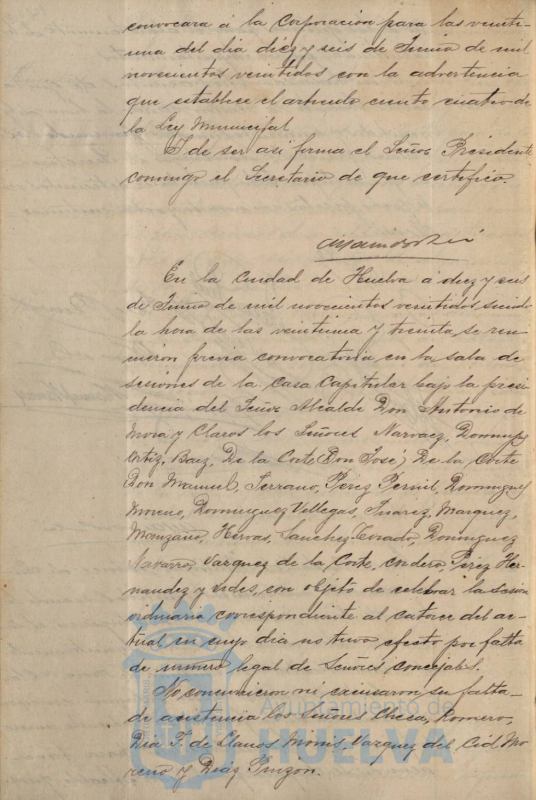 convocara á la Corporación para las veinti-
una del dia diez y seis de Junio de mil
novecientos veintidos con la advertencia
que establece el articulo ciento cuatro de
la Ley Municipal
Y de ser asi firma el Señor Presidente
conmigo el Secretario de que certifico.
En la Ciudad de Huelva á diez y seis
de Junio de mil novecientos veintidos siendo
la hora de las veintiuna y treinta, se reu-
nieron previa convocatoria en la sala de
sesiones de la Casa Capitular bajo la presi-
dencia del Señor Alcalde Don Antonio de
Mora y Claros los Señores Narvaez, Dominguez
Ortiz, Baez, De la Corte (Don José) De la Corte
Don Manuel, Serrano, Pérez Pernil, Dominguez
Moreno, Dominguez Villegas, Suarez, Marquez,
Manzano, Hervas, Sanchez Tirado, Dominguez
Navarro, Vazquez de la Corte, Cordero, Pérez Her-
nandez y, con objeto de celebrar la sesion
ordinaria correspondiente al catorce del ac-
tual en cuyo dia no tuvo efecto por falta
de número legal de Señores concejales.
No concurrieron ni excusaron su falta
de asistencia los Señores Checa, Romero,
Diaz F. de Llanos, Vazquez del Cid, Mo-
reno y Diaz Pinzon.
Ayuntamiento de
HUELVA